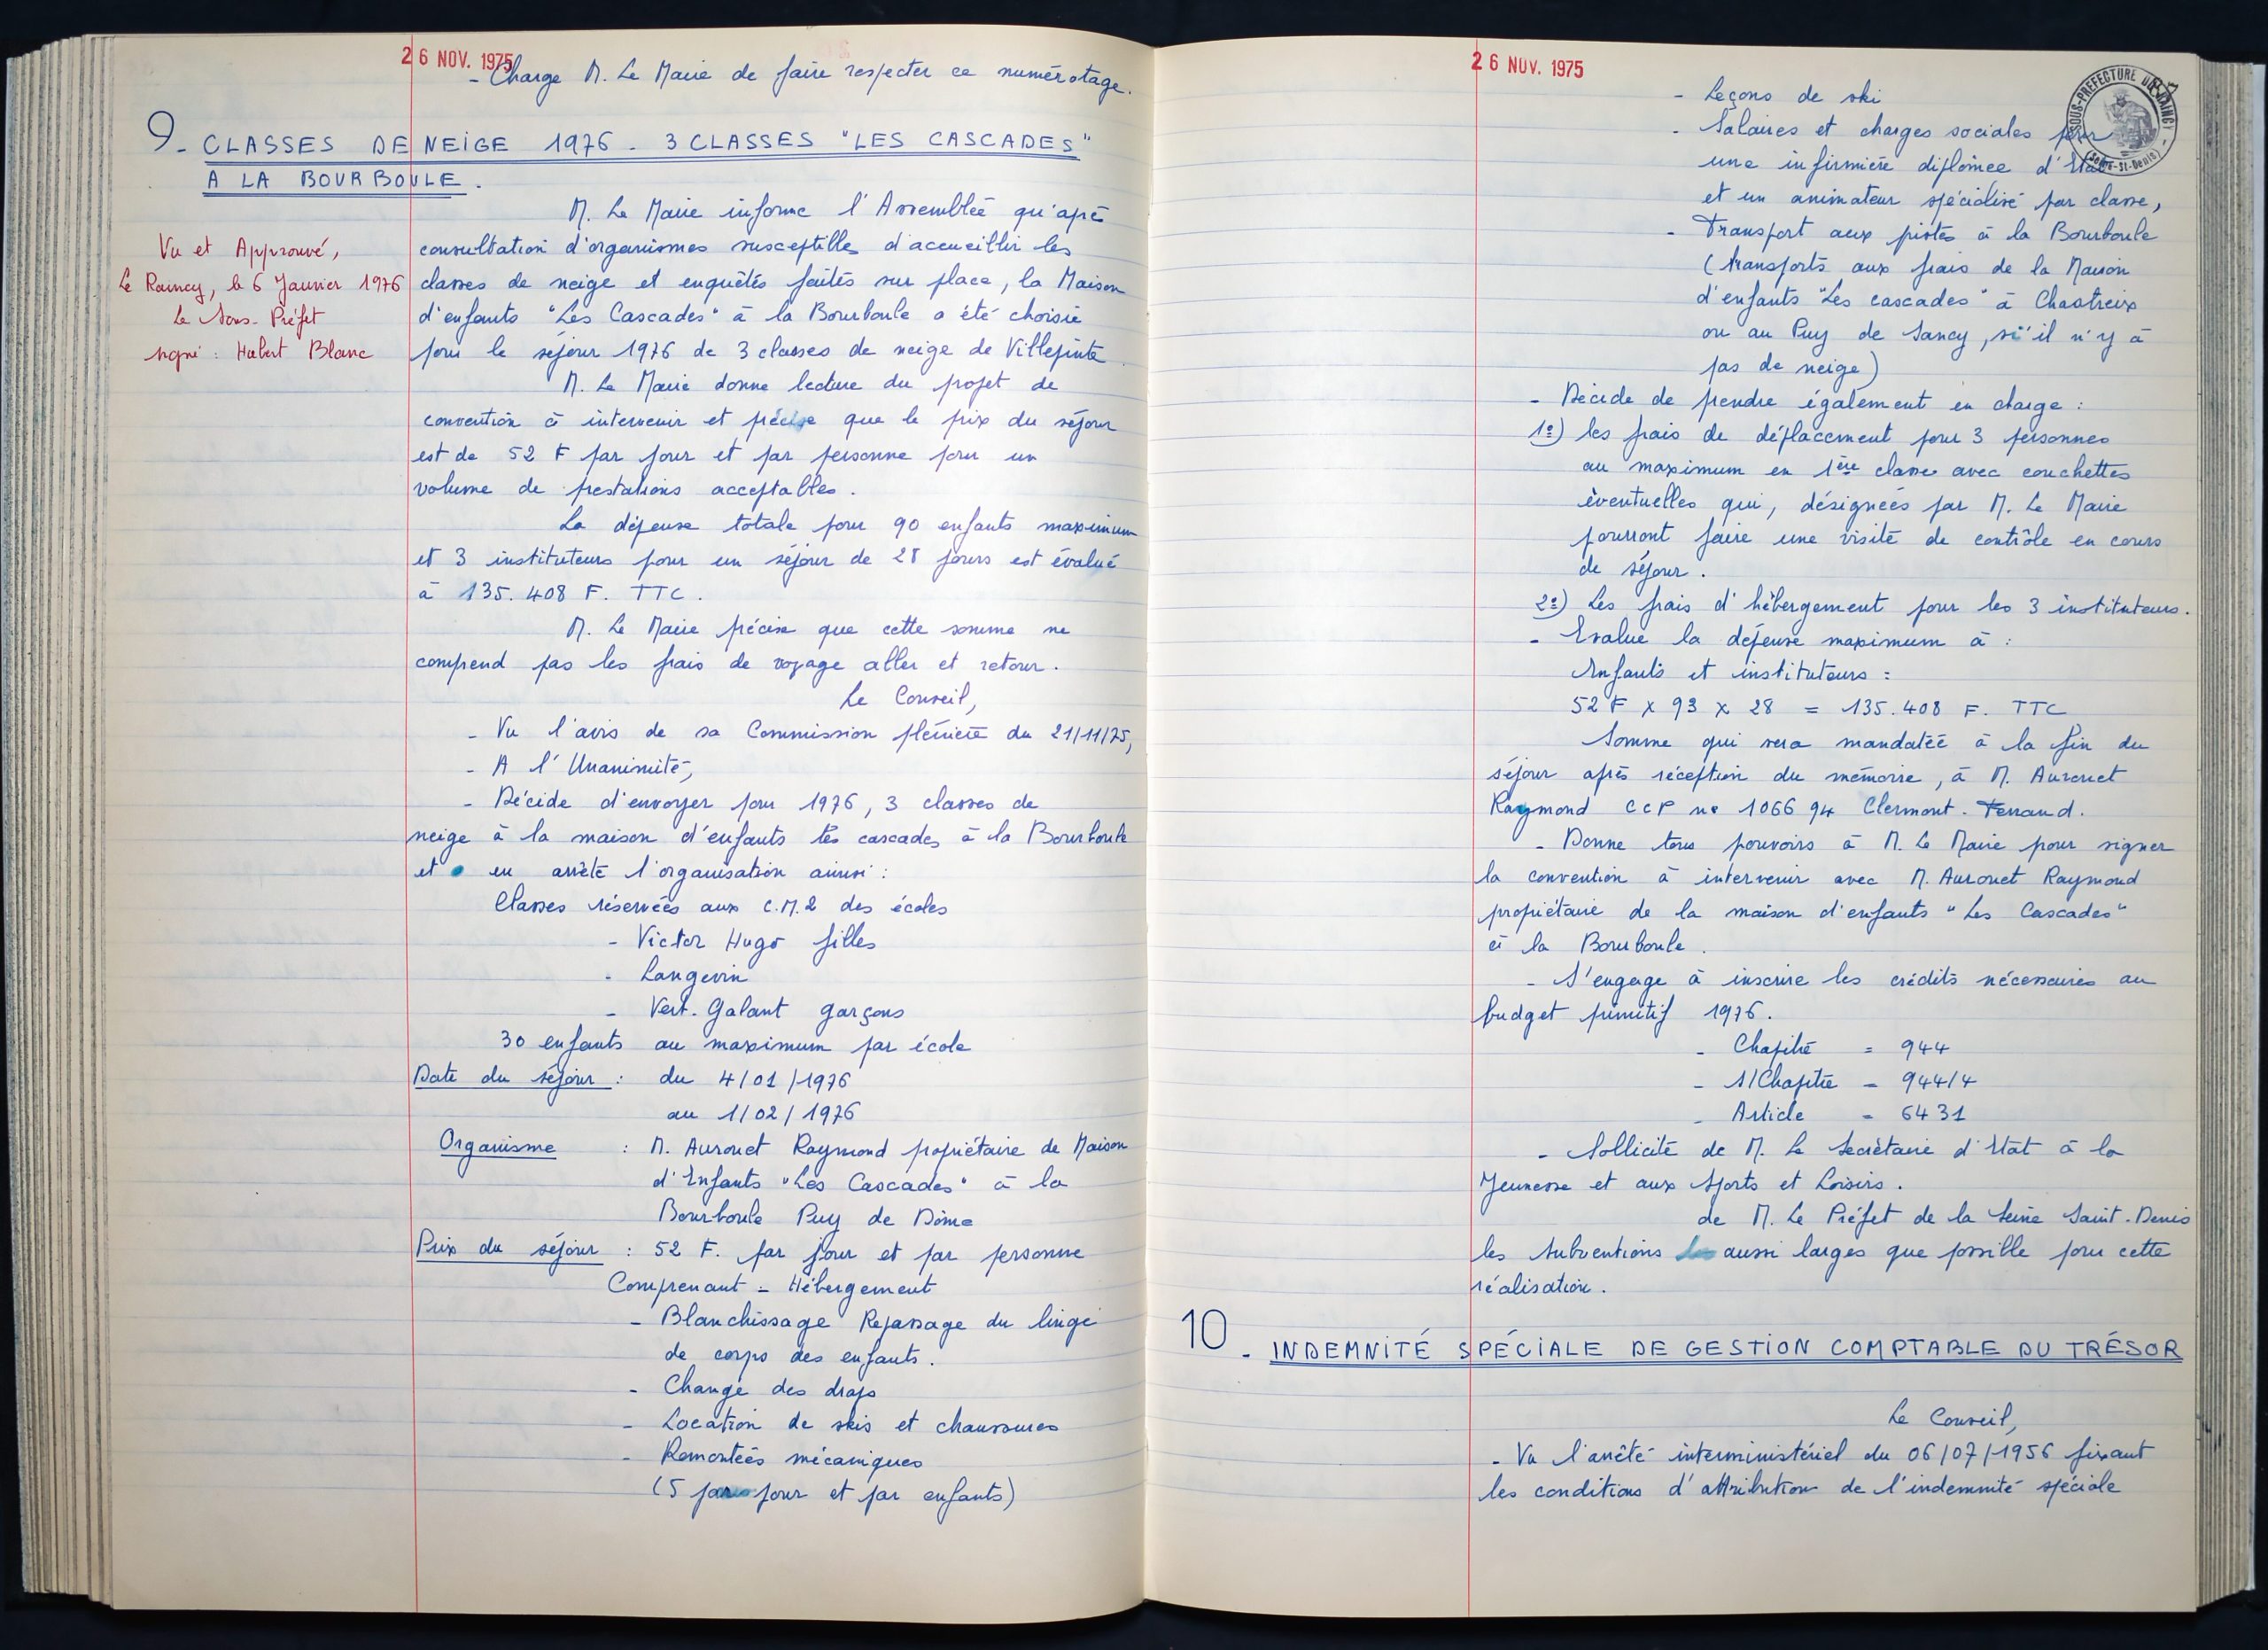 26 NOV. 1975
- Charge M. Le Maire de faire respecter ce numérotage.
9 - CLASSES DE NEIGE 1976 - 3 CLASSES "LES CASCADES"
A LA BOURBOULE.
M. Le Maire informe l'Assemblée qu'après
consultation d'organismes susceptible d'accueillir les
classes de neige et enquêtes faites sur place, la Maison
d'enfants "Les Cascades" à la Bourboule a été choisie
pour le séjour 1976 de 3 classes de neige de Villepinte
Vu et Approuvé,
Le Raincy, le 6 Janvier 1976
Le Sous-Préfet
signé : Hubert Blanc
M. Le Maire donne lecture du projet de
convention à intervenir et précise que le prix du séjour
est de 52 F par jour et par personne pour un
volume de prestations acceptables.
La dépense totale pour 90 enfants maximum
et 3 instituteurs pour un séjour de 28 jours est évalué
à 135.408 F. TTC.
M. Le Maire précise que cette somme ne
comprend pas les frais de voyage aller et retour.
Le Conseil,
- Vu l'avis de sa Commission plénière du 21/11/75,
- A l'Unanimité,
- Décide d'envoyer pour 1976, 3 classes de
neige à la maison d'enfants les cascades à la Bourboule
et en arrête l'organisation ainsi :
Classes réservées aux C.M.2 des écoles
- Victor Hugo filles
- Langevin
- Vert-Galant garçons
30 enfants au maximum par école
Date du séjour : du 4/01/1976
au 1/02/1976
Organisme : M. Aurouet Raymond propriétaire de Maison
d'Enfants "Les Cascades" à la
Bourboule Puy de Dôme
Prix du séjour : 52 F. par jour et par personne
Comprenant - Hébergement
- Blanchissage Repassage du linge
de corps des enfants.
- Change des draps
- Location de skis et chaussures
- Remontées mécaniques
(5 par jour et par enfants)
26 NOV. 1975
SOUS-PREFECTURE DU RAINCY
(Seine-St-Denis)
- Leçons de ski
- Salaires et charges sociales pour
une infirmière diplômée d'Etat
et un animateur spécialisé par classe,
- Transport aux pistes à la Bourboule
(transports aux frais de la Maison
d'enfants "Les cascades" à Chastreix
ou au Puy de Sancy, si'il n'y à
pas de neige)
- Décide de prendre également en charge :
1°) les frais de déplacement pour 3 personnes
au maximum en 1ère classe avec couchettes
éventuelles qui, désignées par M. Le Maire
pourront faire une visite de contrôle en cours
de séjour.
2°) Les frais d'hébergement pour les 3 instituteurs.
- Evalue la dépense maximum à :
Enfants et instituteurs :
52 F x 93 x 28 = 135.408 F. TTC
Somme qui sera mandatée à la fin du
séjour après réception du mémoire, à M. Aurouet
Raymond CCP n° 1066 94 Clermont-Ferrand.
- Donne tous pouvoirs à M. Le Maire pour signer
la convention à intervenir avec M. Aurouet Raymond
propriétaire de la maison d'enfants "Les Cascades"
à la Bourboule.
- S'engage à inscrire les crédits nécessaires au
budget primitif 1976.
- Chapitre = 944
- S/Chapitre = 944/4
- Article = 6431
- Sollicite de M. Le Secrétaire d'Etat à la
Jeunesse et aux Sports et Loisirs.
de M. Le Préfet de la Seine Saint-Denis
les Subventions aussi larges que possible pour cette
réalisation.
10 - INDEMNITÉ SPÉCIALE DE GESTION COMPTABLE DU TRÉSOR
Le Conseil,
- Vu l'arrêté interministériel du 06/07/1956 fixant
les conditions d'attribution de l'indemnité spéciale